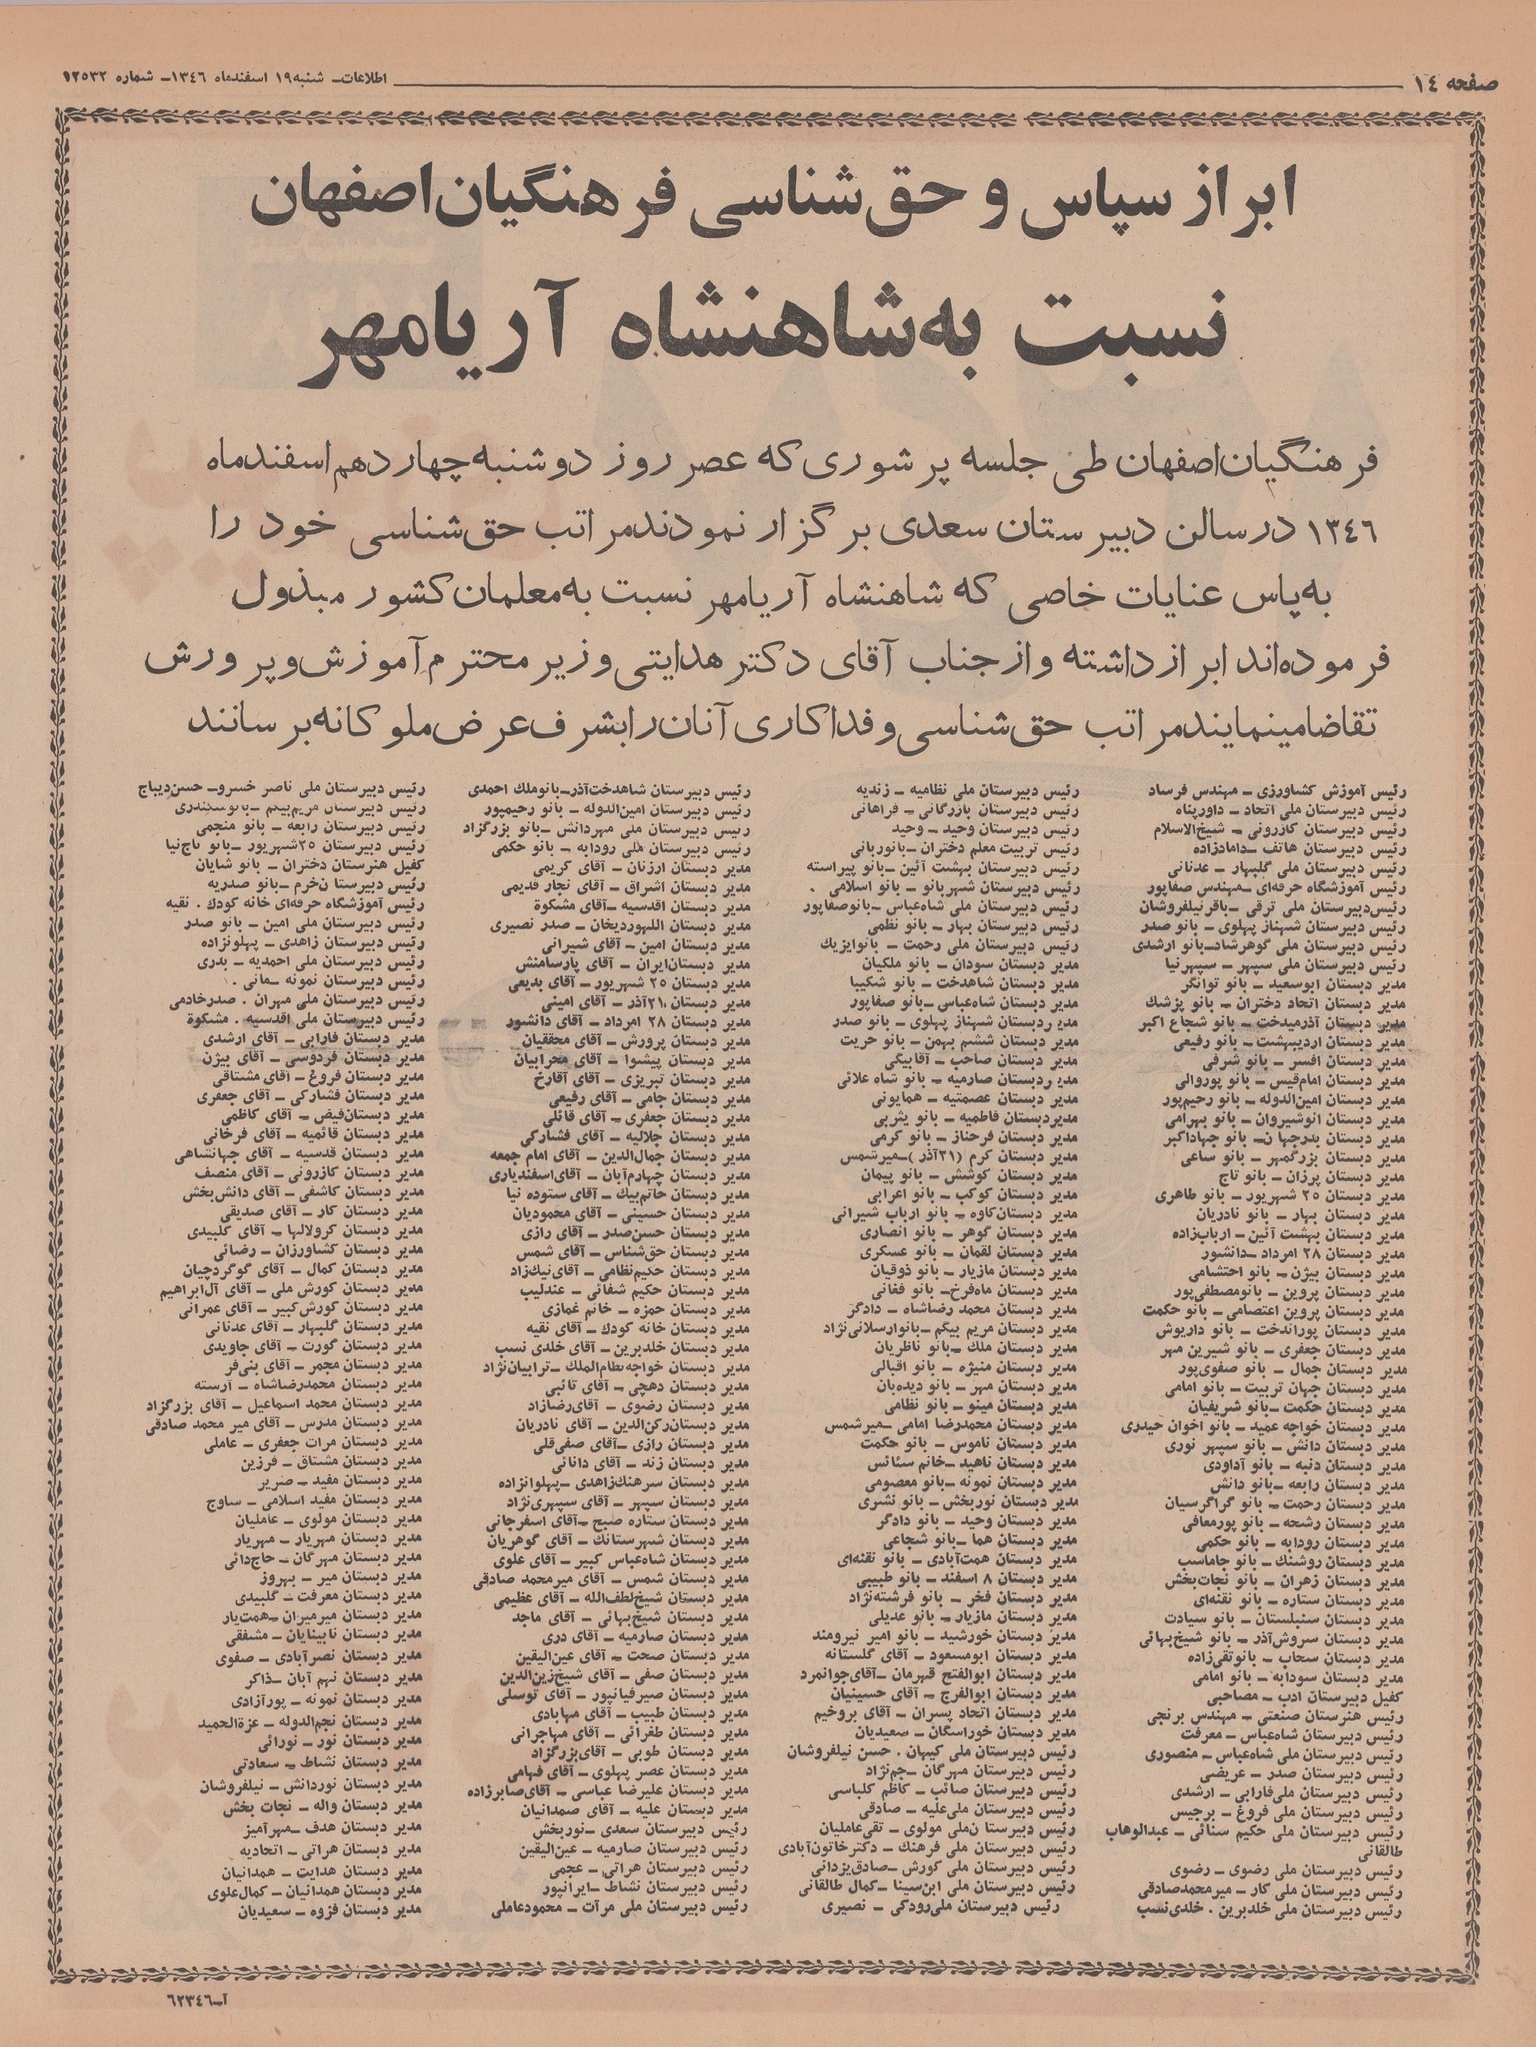 صفحه ۱٤
اطلاعات - شنبه ۱۹ اسفندماه ۱۳٤٦ - شماره ۱۲۵۳۲
ابراز سپاس و حق‌شناسی فرهنگیان اصفهان
نسبت به شاهنشاه آریامهر
فرهنگیان اصفهان طی جلسه پرشوری که عصر روز دوشنبه چهاردهم اسفندماه
۱۳٤٦ در سالن دبیرستان سعدی برگزار نمودند مراتب حق‌شناسی خود را
به‌پاس عنایات خاصی که شاهنشاه آریامهر نسبت به معلمان کشور مبذول
فرموده‌اند ابراز داشته و از جناب آقای دکتر هدایتی وزیر محترم آموزش و پرورش
تقاضا مینمایند مراتب حق‌شناسی و فداکاری آنان را بشرف عرض ملوکانه برسانند
رئیس آموزش کشاورزی - مهندس فرساد
رئیس دبیرستان ملی اتحاد - داورپناه
رئیس دبیرستان کازرونی - شیخ‌الاسلام
رئیس دبیرستان هاتف - دامادزاده
رئیس دبیرستان ملی گلبهار - عدنانی
رئیس آموزشگاه حرفه‌ای - مهندس صفاپور
رئیس دبیرستان ملی ترقی - باقر نیلفروشان
رئیس دبیرستان شهناز پهلوی - بانو صدر
رئیس دبیرستان ملی گوهرشاد - بانو ارشدی
رئیس دبیرستان ملی سپهر - سپهرنیا
مدیر دبستان ابوسعید - بانو توانگر
مدیر دبستان اتحاد دختران - بانو پزشک
مدیر دبستان آذرمیدخت - بانو شجاع اکبر
مدیر دبستان اردیبهشت - بانو رفیعی
مدیر دبستان افسر - بانو شرفی
مدیر دبستان امام‌قیس - بانو پوروالی
مدیر دبستان امین‌الدوله - بانو رحیم‌پور
مدیر دبستان انوشیروان - بانو بهرامی
مدیر دبستان بدرجهان - بانو جهاداکبر
مدیر دبستان بزرگمهر - بانو ساعی
مدیر دبستان پرزان - بانو تاج
مدیر دبستان ۲۵ شهریور - بانو طاهری
مدیر دبستان بهار - بانو نادریان
مدیر دبستان بهشت آئین - ارباب‌زاده
مدیر دبستان ۲۸ امرداد - دانشور
مدیر دبستان بیژن - بانو احتشامی
مدیر دبستان پروین - بانو مصطفی‌پور
مدیر دبستان پروین اعتصامی - بانو حکمت
مدیر دبستان پوراندخت - بانو داریوش
مدیر دبستان جعفری - بانو شیرین مهر
مدیر دبستان جمال - بانو صفوی‌پور
مدیر دبستان جهان تربیت - بانو امامی
مدیر دبستان حکمت - بانو شریفیان
مدیر دبستان خواجه عمید - بانو اخوان حیدری
مدیر دبستان دانش - بانو سپهر نوری
مدیر دبستان دنبه - بانو آداودی
مدیر دبستان رابعه - بانو دانش
مدیر دبستان رحمت - بانو گراگرسیان
مدیر دبستان رشحه - بانو پورمعافی
مدیر دبستان رودابه - بانو حکمی
مدیر دبستان روشنک - بانو جاماسب
مدیر دبستان زهران - بانو نجات‌بخش
مدیر دبستان ستاره - بانو نقنه‌ای
مدیر دبستان سنبلستان - بانو سیادت
مدیر دبستان سروش‌آذر - بانو شیخ‌بهائی
مدیر دبستان سحاب - بانو تقی‌زاده
مدیر دبستان سودابه - بانو امامی
کفیل دبیرستان ادب - مصاحبی
رئیس هنرستان صنعتی - مهندس برنجی
رئیس دبیرستان شاه‌عباس - معرفت
رئیس دبیرستان ملی شاه‌عباس - منصوری
رئیس دبیرستان صدر - عریضی
رئیس دبیرستان ملی فارابی - ارشدی
رئیس دبیرستان ملی فروغ - برجیس
رئیس دبیرستان ملی حکیم سنائی - عبدالوهاب
طالقانی
رئیس دبیرستان ملی رضوی - رضوی
رئیس دبیرستان ملی کار - میرمحمدصادقی
رئیس دبیرستان ملی خلدبرین . خلدی‌نسب
رئیس دبیرستان ملی نظامیه - زندیه
رئیس دبیرستان بازرگانی - فراهانی
رئیس دبیرستان وحید - وحید
رئیس تربیت معلم دختران - بانوربانی
رئیس دبیرستان بهشت آئین - بانو پیراسته
رئیس دبیرستان شهربانو - بانو اسلامی .
رئیس دبیرستان ملی شاه‌عباس - بانو صفاپور
رئیس دبیرستان بهار - بانو نظمی
رئیس دبیرستان ملی رحمت - بانو ایزبک
مدیر دبستان سودان - بانو ملکیان
مدیر دبستان شاهدخت - بانو شکیبا
مدیر دبستان شاه‌عباس - بانو صفاپور
مدیر دبستان شهناز پهلوی - بانو صدر
مدیر دبستان ششم بهمن - بانو حریت
مدیر دبستان صاحب - آقابیگی
مدیر دبستان صارمیه - بانو شاه علائی
مدیر دبستان عصمتیه - همایونی
مدیر دبستان فاطمیه - بانو یثربی
مدیر دبستان فرحناز - بانو کرمی
مدیر دبستان کرم (۲۱آذر) - میرشمس
مدیر دبستان کوشش - بانو پیمان
مدیر دبستان کوکب - بانو اعرابی
مدیر دبستان کاوه - بانو ارباب شیرانی
مدیر دبستان گوهر - بانو انصاری
مدیر دبستان لقمان - بانو عسکری
مدیر دبستان مازیار - بانو ذوقیان
مدیر دبستان ماه‌فرخ - بانو فغانی
مدیر دبستان محمد رضاشاه - دادگر
مدیر دبستان مریم بیگم - بانو ارسلانی‌نژاد
مدیر دبستان ملک - بانو ناظریان
مدیر دبستان منیژه - بانو اقبالی
مدیر دبستان مهر - بانو دیده‌بان
مدیر دبستان مینو - بانو نظامی
مدیر دبستان محمدرضا امامی - میرشمس
مدیر دبستان ناموس - بانو حکمت
مدیر دبستان ناهید - خانم سنائس
مدیر دبستان نمونه - بانو معصومی
مدیر دبستان نوربخش - بانو نشری
مدیر دبستان وحید - بانو دادگر
مدیر دبستان هما - بانو شجاعی
مدیر دبستان همت‌آبادی - بانو نقنه‌ای
مدیر دبستان ۸ اسفند - بانو طبیبی
مدیر دبستان فخر - بانو فرشته‌نژاد
مدیر دبستان مازیار - بانو عدیلی
مدیر دبستان خورشید - بانو امیر نیرومند
مدیر دبستان ابومسعود - آقای گلستانه
مدیر دبستان ابوالفتح قهرمان - آقای جوانمرد
مدیر دبستان ابوالفرج - آقای حسینیان
مدیر دبستان اتحاد پسران - آقای بروخیم
مدیر دبستان خوراسگان - سعیدیان
رئیس دبیرستان ملی کیهان . حسن نیلفروشان
رئیس دبیرستان مهرگان - جم‌نژاد
رئیس دبیرستان صائب - کاظم کلباسی
رئیس دبیرستان ملی علیه - صادقی
رئیس دبیرستان ملی مولوی - تقی عاملیان
رئیس دبیرستان ملی فرهنگ - دکتر خاتون‌آبادی
رئیس دبیرستان ملی کورش - صادق یزدانی
رئیس دبیرستان ملی ابن‌سینا - کمال طالقانی
رئیس دبیرستان ملی رودکی - نصیری
رئیس دبیرستان شاهدخت‌آذر - بانو ملک احمدی
رئیس دبیرستان امین‌الدوله - بانو رحیمپور
رئیس دبیرستان ملی مهردانش - بانو بزرگزاد
رئیس دبیرستان ملی رودابه - بانو حکمی
مدیر دبستان ارژنان - آقای کریمی
مدیر دبستان اشراق - آقای نجار قدیمی
مدیر دبستان اقدسیه - آقای مشکوة
مدیر دبستان اللهوردیخان - صدر نصیری
مدیر دبستان امین - آقای شیرانی
مدیر دبستان ایران - آقای پارسامنش
مدیر دبستان ۲۵ شهریور - آقای بدیعی
مدیر دبستان ۲۱آذر - آقای امینی
مدیر دبستان ۲۸ امرداد - آقای دانشور
مدیر دبستان پرورش - آقای محققیان
مدیر دبستان پیشوا - آقای محرابیان
مدیر دبستان تبریزی - آقای آقارخ
مدیر دبستان جامی - آقای رفیعی
مدیر دبستان جعفری - آقای قائلی
مدیر دبستان جلالیه - آقای فشارکی
مدیر دبستان جمال‌الدین - آقای امام جمعه
مدیر دبستان چهارم‌آبان - آقای اسفندیاری
مدیر دبستان حاتم‌بیک - آقای ستوده نیا
مدیر دبستان حسینی - آقای محمودیان
مدیر دبستان حسن‌صدر - آقای رازی
مدیر دبستان حق‌شناس - آقای شمس
مدیر دبستان حکیم‌نظامی - آقای نیک‌زاد
مدیر دبستان حکیم شفائی - عندلیب
مدیر دبستان حمزه - خانم غمازی
مدیر دبستان خانه کودک - آقای نقیه
مدیر دبستان خلدبرین - آقای خلدی نسب
مدیر دبستان خواجه نظام‌الملک - ترابیان‌نژاد
مدیر دبستان دهچی - آقای تائبی
مدیر دبستان رضوی - آقای رضازاد
مدیر دبستان رکن‌الدین - آقای نادریان
مدیر دبستان رازی - آقای صفی‌قلی
مدیر دبستان زند - آقای دانائی
مدیر دبستان سرهنگ‌زاهدی - پهلوانزاده
مدیر دبستان سپهر - آقای سپهری‌نژاد
مدیر دبستان ستاره صبح - آقای اسفرجانی
مدیر دبستان شهرستانک - آقای گوهریان
مدیر دبستان شاه‌عباس کبیر - آقای علوی
مدیر دبستان شمس - آقای میرمحمد صادقی
مدیر دبستان شیخ‌لطف‌الله - آقای عظیمی
مدیر دبستان شیخ‌بهائی - آقای ماجد
مدیر دبستان صارمیه - آقای دری
مدیر دبستان صحت - آقای عین‌الیقین
مدیر دبستان صفی - آقای شیخ‌زین‌الدین
مدیر دبستان صیرفیانپور - آقای توسلی
مدیر دبستان طبیب - آقای مهابادی
مدیر دبستان طغرائی - آقای مهاجرانی
مدیر دبستان طوبی - آقای بزرگزاد
مدیر دبستان عصر پهلوی - آقای فهامی
مدیر دبستان علیرضا عباسی - آقای صابرزاده
مدیر دبستان علیه - آقای صمدانیان
رئیس دبیرستان سعدی - نوربخش
رئیس دبیرستان صارمیه - عین‌الیقین
رئیس دبیرستان هراتی - عجمی
رئیس دبیرستان نشاط - ایرانپور
رئیس دبیرستان ملی مرآت - محمود عاملی
رئیس دبیرستان ملی ناصر خسرو - حسن دیباج
رئیس دبیرستان مریم‌بیگم - بانو سکندری
رئیس دبیرستان رابعه - بانو منجمی
رئیس دبیرستان ۲۵شهریور - بانو تاج‌نیا
کفیل هنرستان دختران - بانو شایان
رئیس دبیرستان خرم - بانو صدریه
رئیس آموزشگاه حرفه‌ای خانه کودک . نقیه
رئیس دبیرستان ملی امین - بانو صدر
رئیس دبیرستان زاهدی - پهلونزاده
رئیس دبیرستان ملی احمدیه - بدری
رئیس دبیرستان نمونه - مانی .
رئیس دبیرستان ملی مهران . صدرخادمی
رئیس دبیرستان ملی اقدسیه . مشکوة
مدیر دبستان فارابی - آقای ارشدی
مدیر دبستان فردوسی - آقای بیژن
مدیر دبستان فروغ - آقای مشتاقی
مدیر دبستان فشارکی - آقای جعفری
مدیر دبستان فیض - آقای کاظمی
مدیر دبستان قائمیه - آقای فرخانی
مدیر دبستان قدسیه - آقای جهانشاهی
مدیر دبستان کازرونی - آقای منصف
مدیر دبستان کاشفی - آقای دانش‌بخش
مدیر دبستان کار - آقای صدیقی
مدیر دبستان کرولالها - آقای گلبیدی
مدیر دبستان کشاورزان - رضائی
مدیر دبستان کمال - آقای گوگردچیان
مدیر دبستان کورش ملی - آقای آل‌ابراهیم
مدیر دبستان کورش‌کبیر - آقای عمرانی
مدیر دبستان گلبهار - آقای عدنانی
مدیر دبستان گورت - آقای جاویدی
مدیر دبستان مجمر - آقای بنی‌فر
مدیر دبستان محمدرضاشاه - آرسته
مدیر دبستان محمد اسماعیل - آقای بزرگزاد
مدیر دبستان مدرس - آقای میر محمد صادقی
مدیر دبستان مرات جعفری - عاملی
مدیر دبستان مشتاق - فرزین
مدیر دبستان مفید - ضریر
مدیر دبستان مفید اسلامی - ساوج
مدیر دبستان مولوی - عاملیان
مدیر دبستان مهریار - مهریار
مدیر دبستان مهرگان - حاج‌دائی
مدیر دبستان میر - بهروز
مدیر دبستان معرفت - گلبیدی
مدیر دبستان میرمیران - همت‌یار
مدیر دبستان نابینایان - مشفقی
مدیر دبستان نصرآبادی - صفوی
مدیر دبستان نهم آبان - ذاکر
مدیر دبستان نمونه - پورآزادی
مدیر دبستان نجم‌الدوله - عزةالحمید
مدیر دبستان نور - نورائی
مدیر دبستان نشاط - سعادتی
مدیر دبستان نوردانش - نیلفروشان
مدیر دبستان واله - نجات بخش
مدیر دبستان هدف - مهرآمیز
مدیر دبستان هراتی - اتحادیه
مدیر دبستان هدایت - همدانیان
مدیر دبستان همدانیان - کمال علوی
مدیر دبستان قزوه - سعیدیان
آ-٦۲۳٤٦